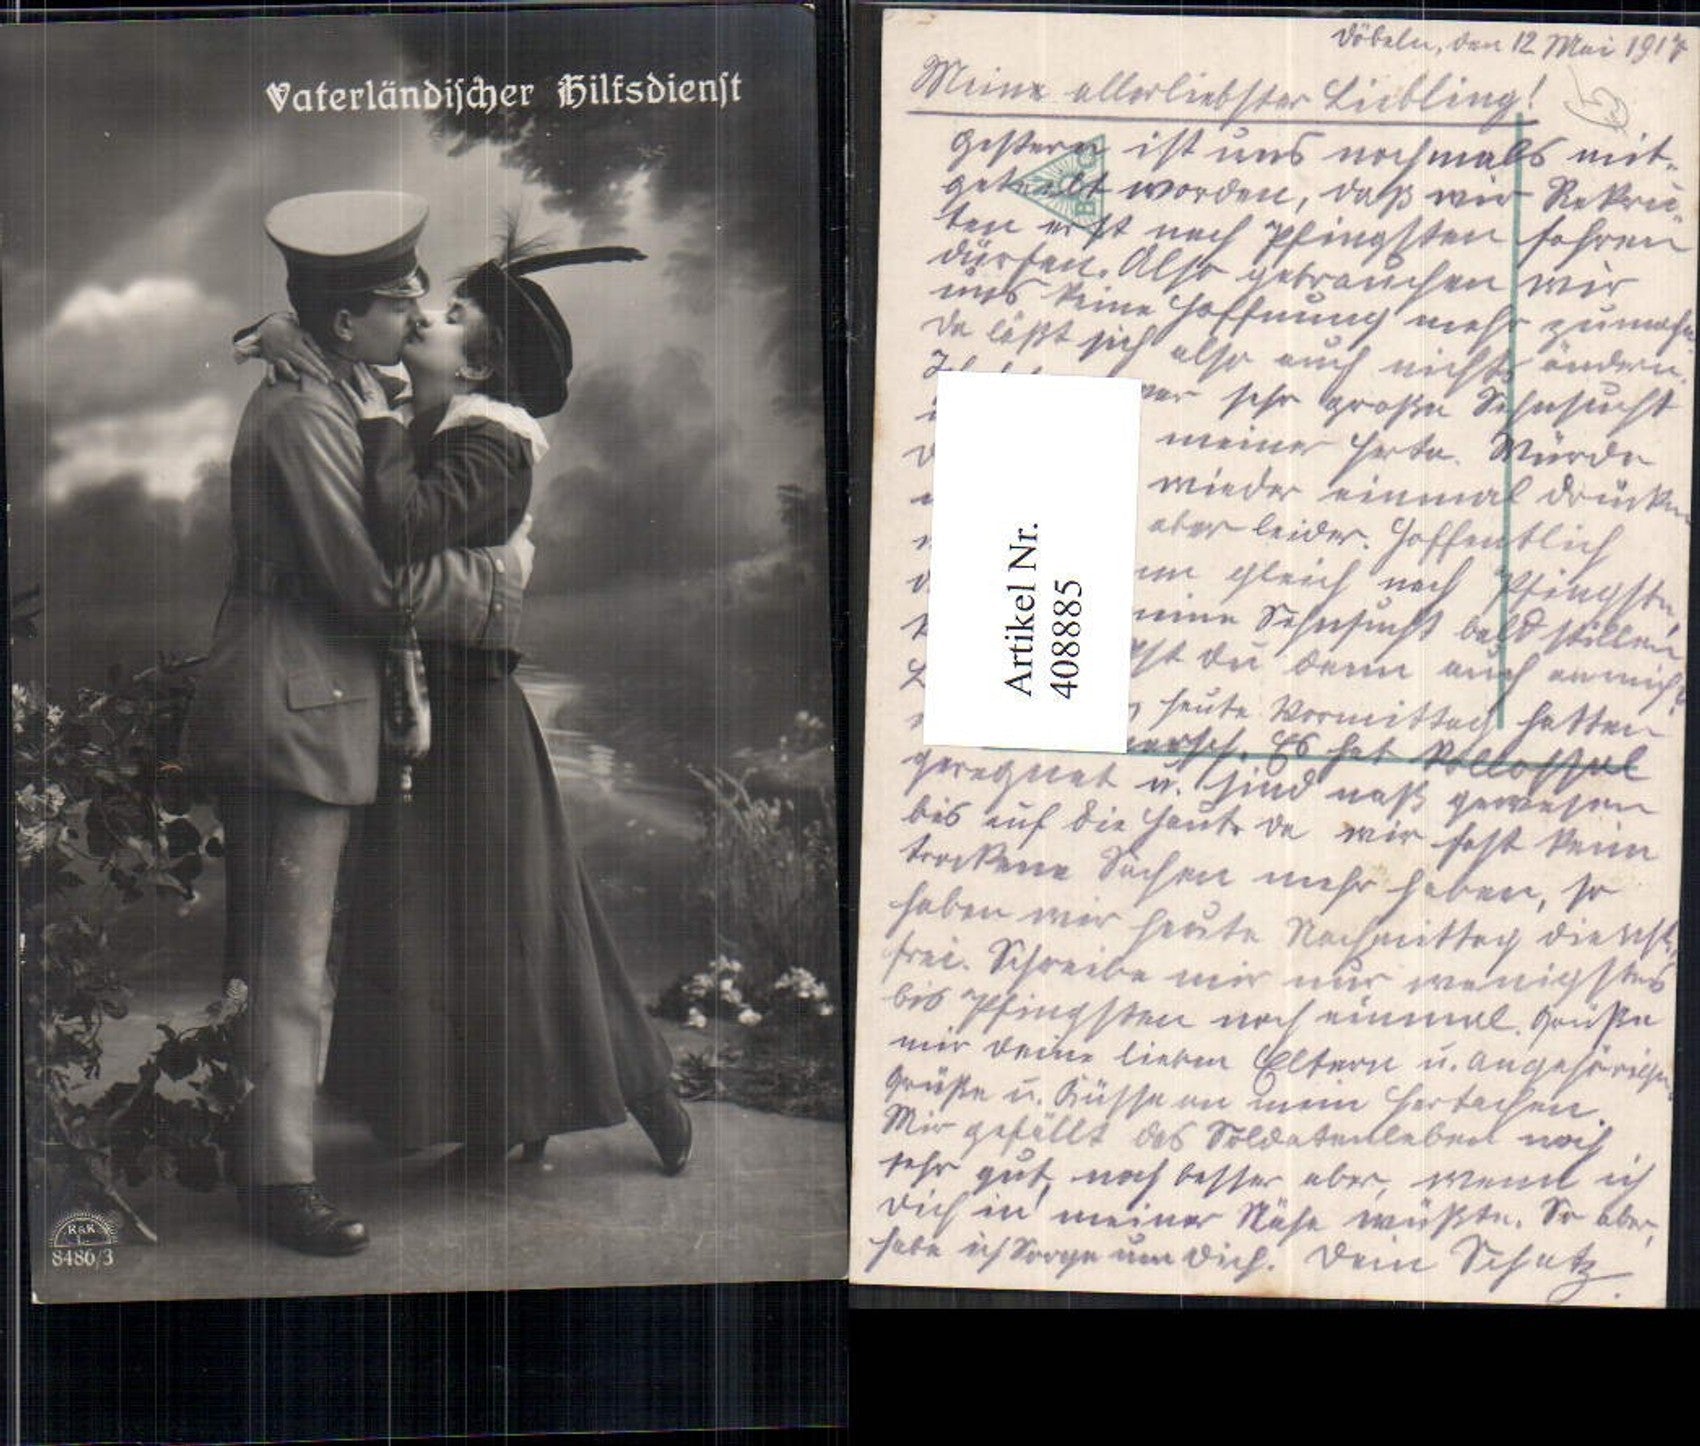 Vaterländischer Hilfsdienst
R&K
L.
8486/3
Döbeln, den 12 Mai 1917
Meine allerliebster Liebling!
Gestern ist uns nochmals mit-
geteilt worden, daß wir Rekru-
ten erst nach Pfingsten fahren
dürfen. Also gebrauchen wir
uns keine Hoffnung mehr zumachen
da läßt sich also auch nichts ändern.
sehr große Sehnsucht
meiner Herta. Würde
wieder einmal drücken
aber leider. Hoffentlich
gleich nach Pfingsten
meine Sehnsucht bald stillen
du denn auch an mich?
heute Vormittag hatten
Es hat kollossal
geregnet u. sind naß gewesen
bis auf die Haut. da wir fast kein
trockene Sachen mehr haben, so
haben wir heute Nachmittag dienst-
frei. Schreibe mir nur wenigstens
bis Pfingsten noch einmal. Grüße
mir deine lieben Eltern u. Angehörigen
Grüße u. Küsse an mein Hertachen.
Mir gefällt das Soldatenleben noch
sehr gut, noch besser aber, wenn ich
dich in meiner Nähe wüßte. So aber,
habe ich Sorge um dich. Dein Schatz.
Artikel Nr.
408885